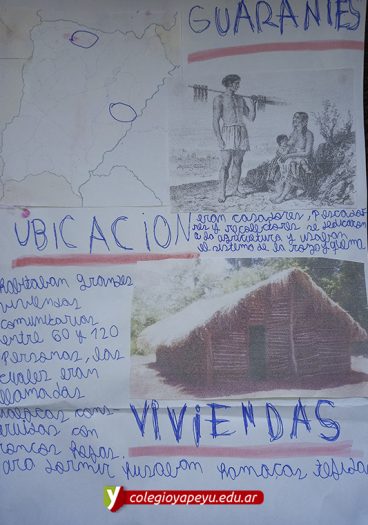 GUARANIES
UBICACION
eran casadores, pescado
res y recolectores se dedicaron
a la agricultura y usaban
el sistema de la roza y quema
habitaban grandes
viviendas
comunitarias
entre 60 y 120
personas, las
cuales eran
llamadas
malocas cons
truidas con
troncos hojas.
para dormir husaban hamacas tejidas
VIVIENDAS
colegioyapeyu.edu.ar